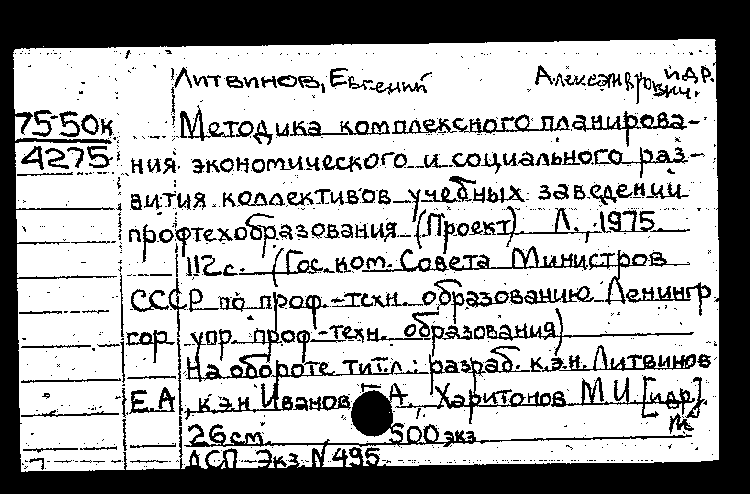 Литвинов, Евгений Александрович и др.
75-50к Методика комплексного планирова-
4275 ния экономического и социального раз-
вития коллективов учебных заведений
профтехобразования (Проект). Л., 1975.
112 с. (Гос. ком. Совета Министров
СССР по проф.-техн. образованию Ленингр.
гор. упр. проф-техн. образования)
На обороте тит.л.: разраб. к.э.н. Литвинов
Е.А., к.э.н Иванов А., Харитонов М.И. [и др].
26 см. 500 экз.
ДСП Экз. N 495